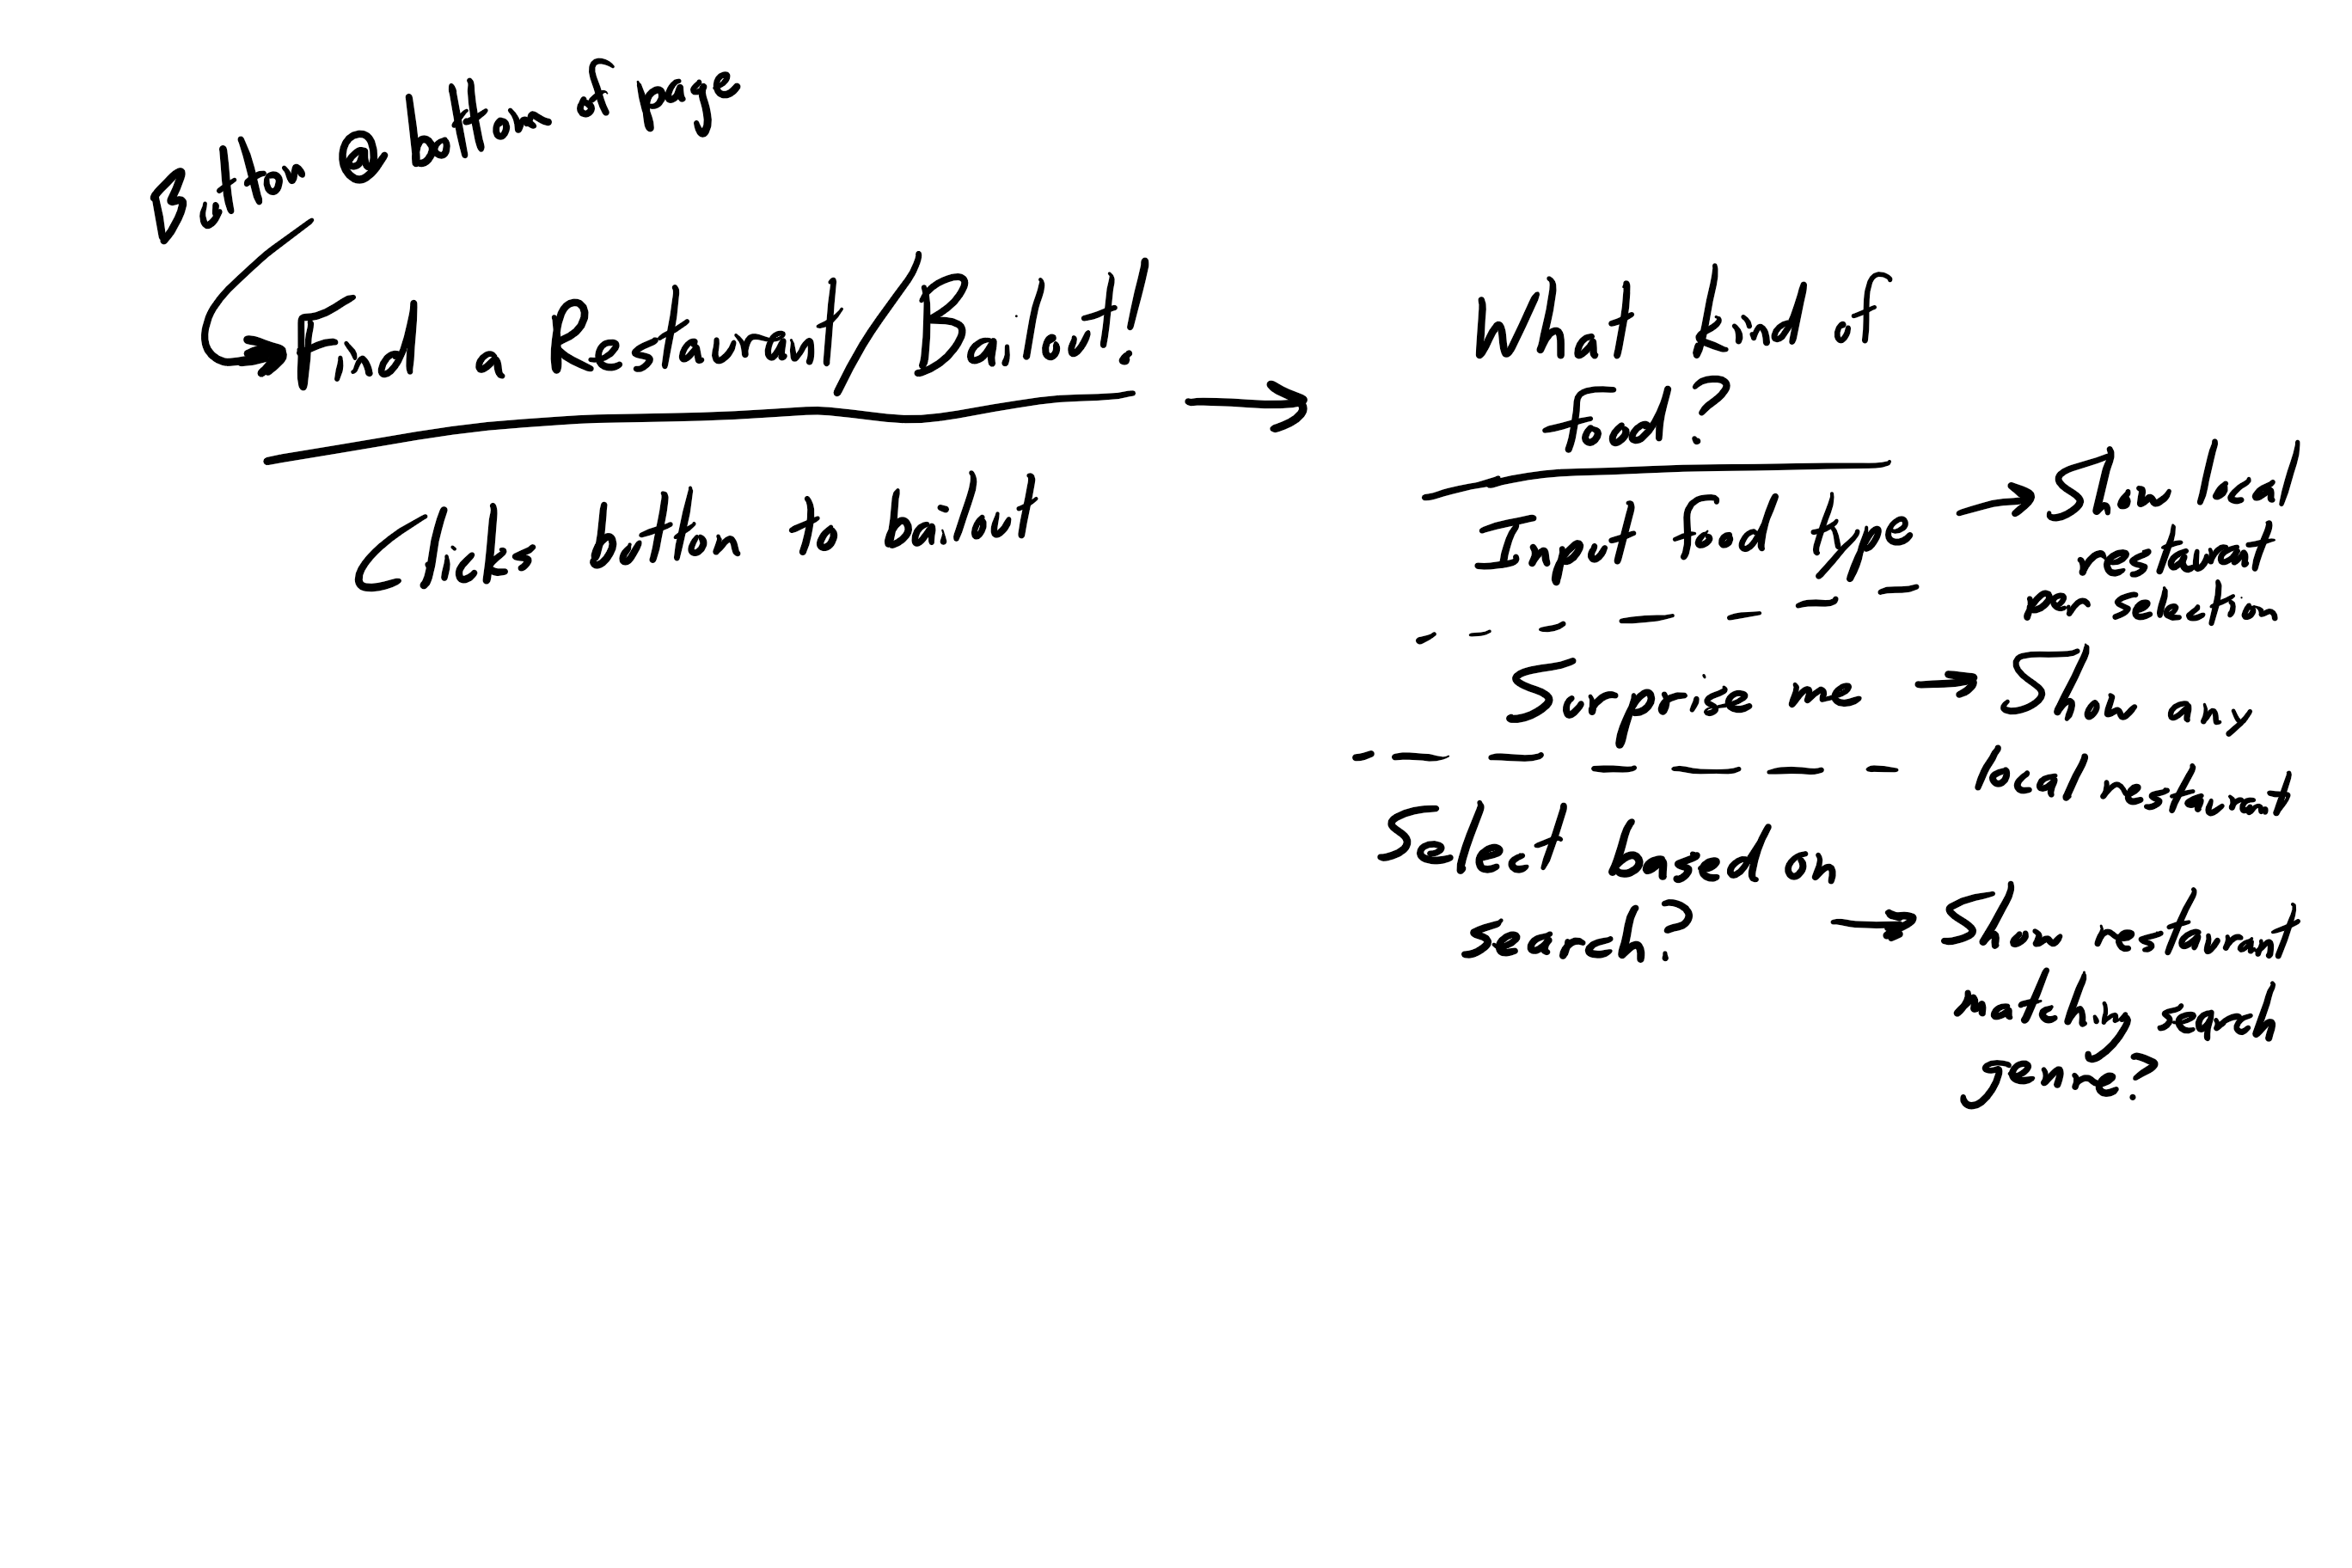 Button @ bottom of page
Find a Restaurant/Bailout!
Clicks button to bailout
What kind of
food?
Input food type
Show local
restaurant
per selection
Surprise me
Show any
local restaurant
Select based on
search?
Show restaurant
matching search
genre?